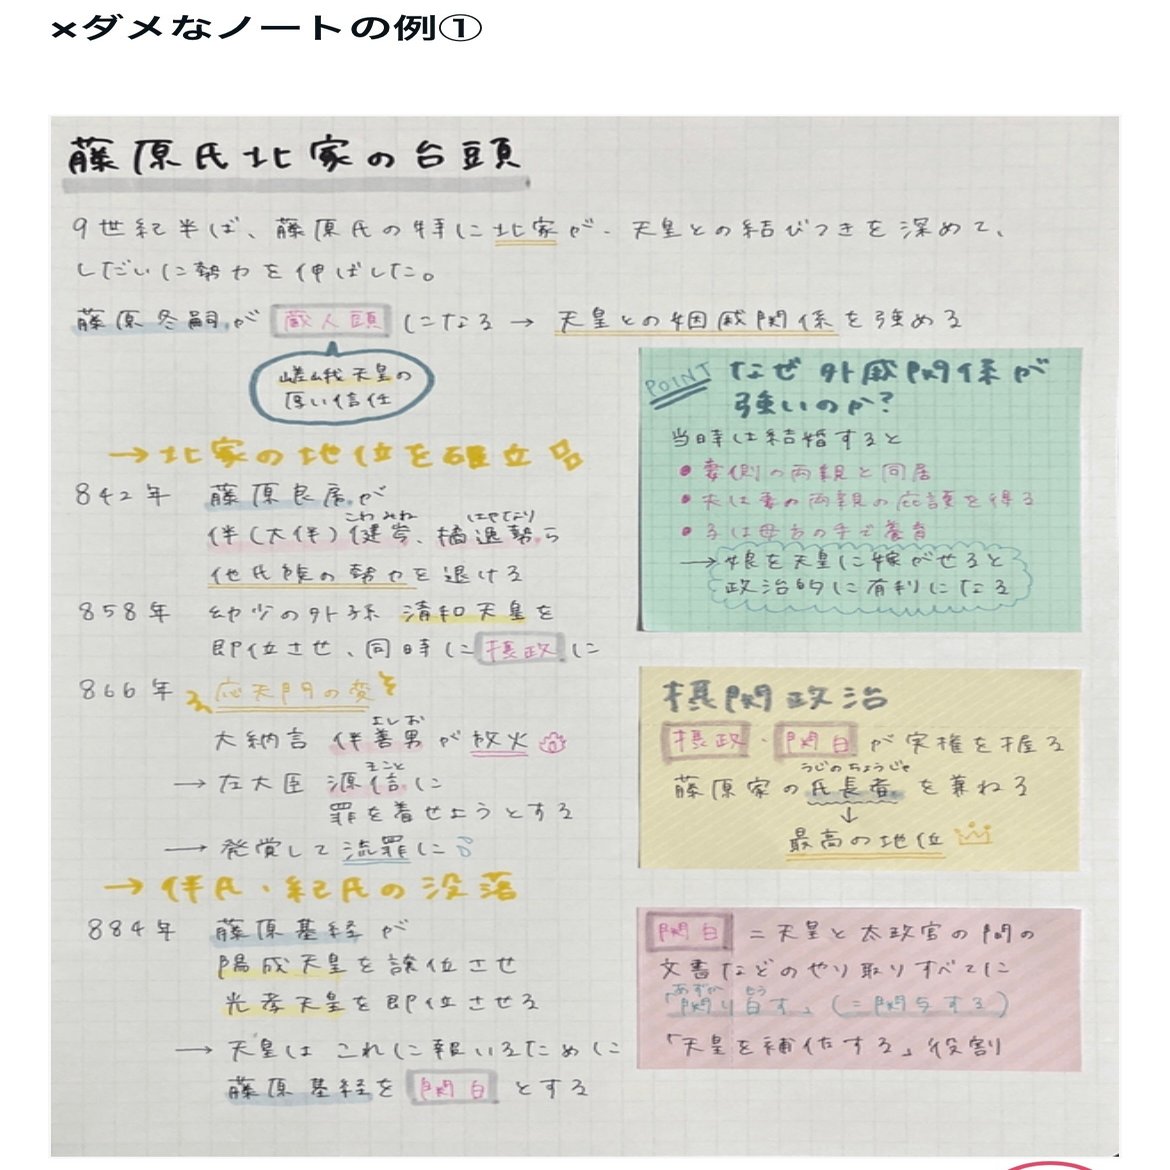 ×ダメなノートの例①
藤原氏北家の台頭
9世紀半ば、藤原氏の特に北家が、天皇との結びつきを深めて、
しだいに勢力を伸ばした。
藤原冬嗣が 蔵人頭 になる → 天皇との姻戚関係を強める
嵯峨天皇の
厚い信任
→北家の地位を確立
842年 藤原良房が
こわみね はやなり
伴(大伴)健岑、橘逸勢ら
他氏族の勢力を退ける
858年 幼少の外孫 清和天皇を
即位させ、同時に 摂政 に
866年 応天門の変
よしお
大納言 伴善男 が放火
まこと
→ 左大臣 源信に
罪を着せようとする
→ 発覚して流罪に
→ 伴氏・紀氏の没落
884年 藤原基経が
陽成天皇を譲位させ
光孝天皇を即位させる
→ 天皇は これに報いるために
藤原基経を 関白 とする
POINT なぜ外戚関係が
強いのか?
当時は結婚すると
•妻側の両親と同居
•夫は妻の両親の庇護を得る
•子は母方の手で養育
→娘を天皇に嫁がせると
政治的に有利になる
摂関政治
摂政・関白 が実権を握る
うじのちょうじゃ
藤原家の氏長者 を兼ねる
↓
最高の地位
関白 =天皇と太政官の間の
文書などのやり取りすべてに
あずか もう
「関り白す」(=関与する)
「天皇を補佐する」役割